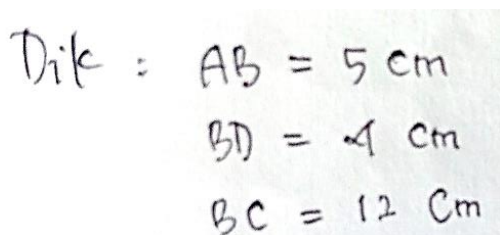 Dik : AB = 5 cm
BD = 4 cm
BC = 12 cm